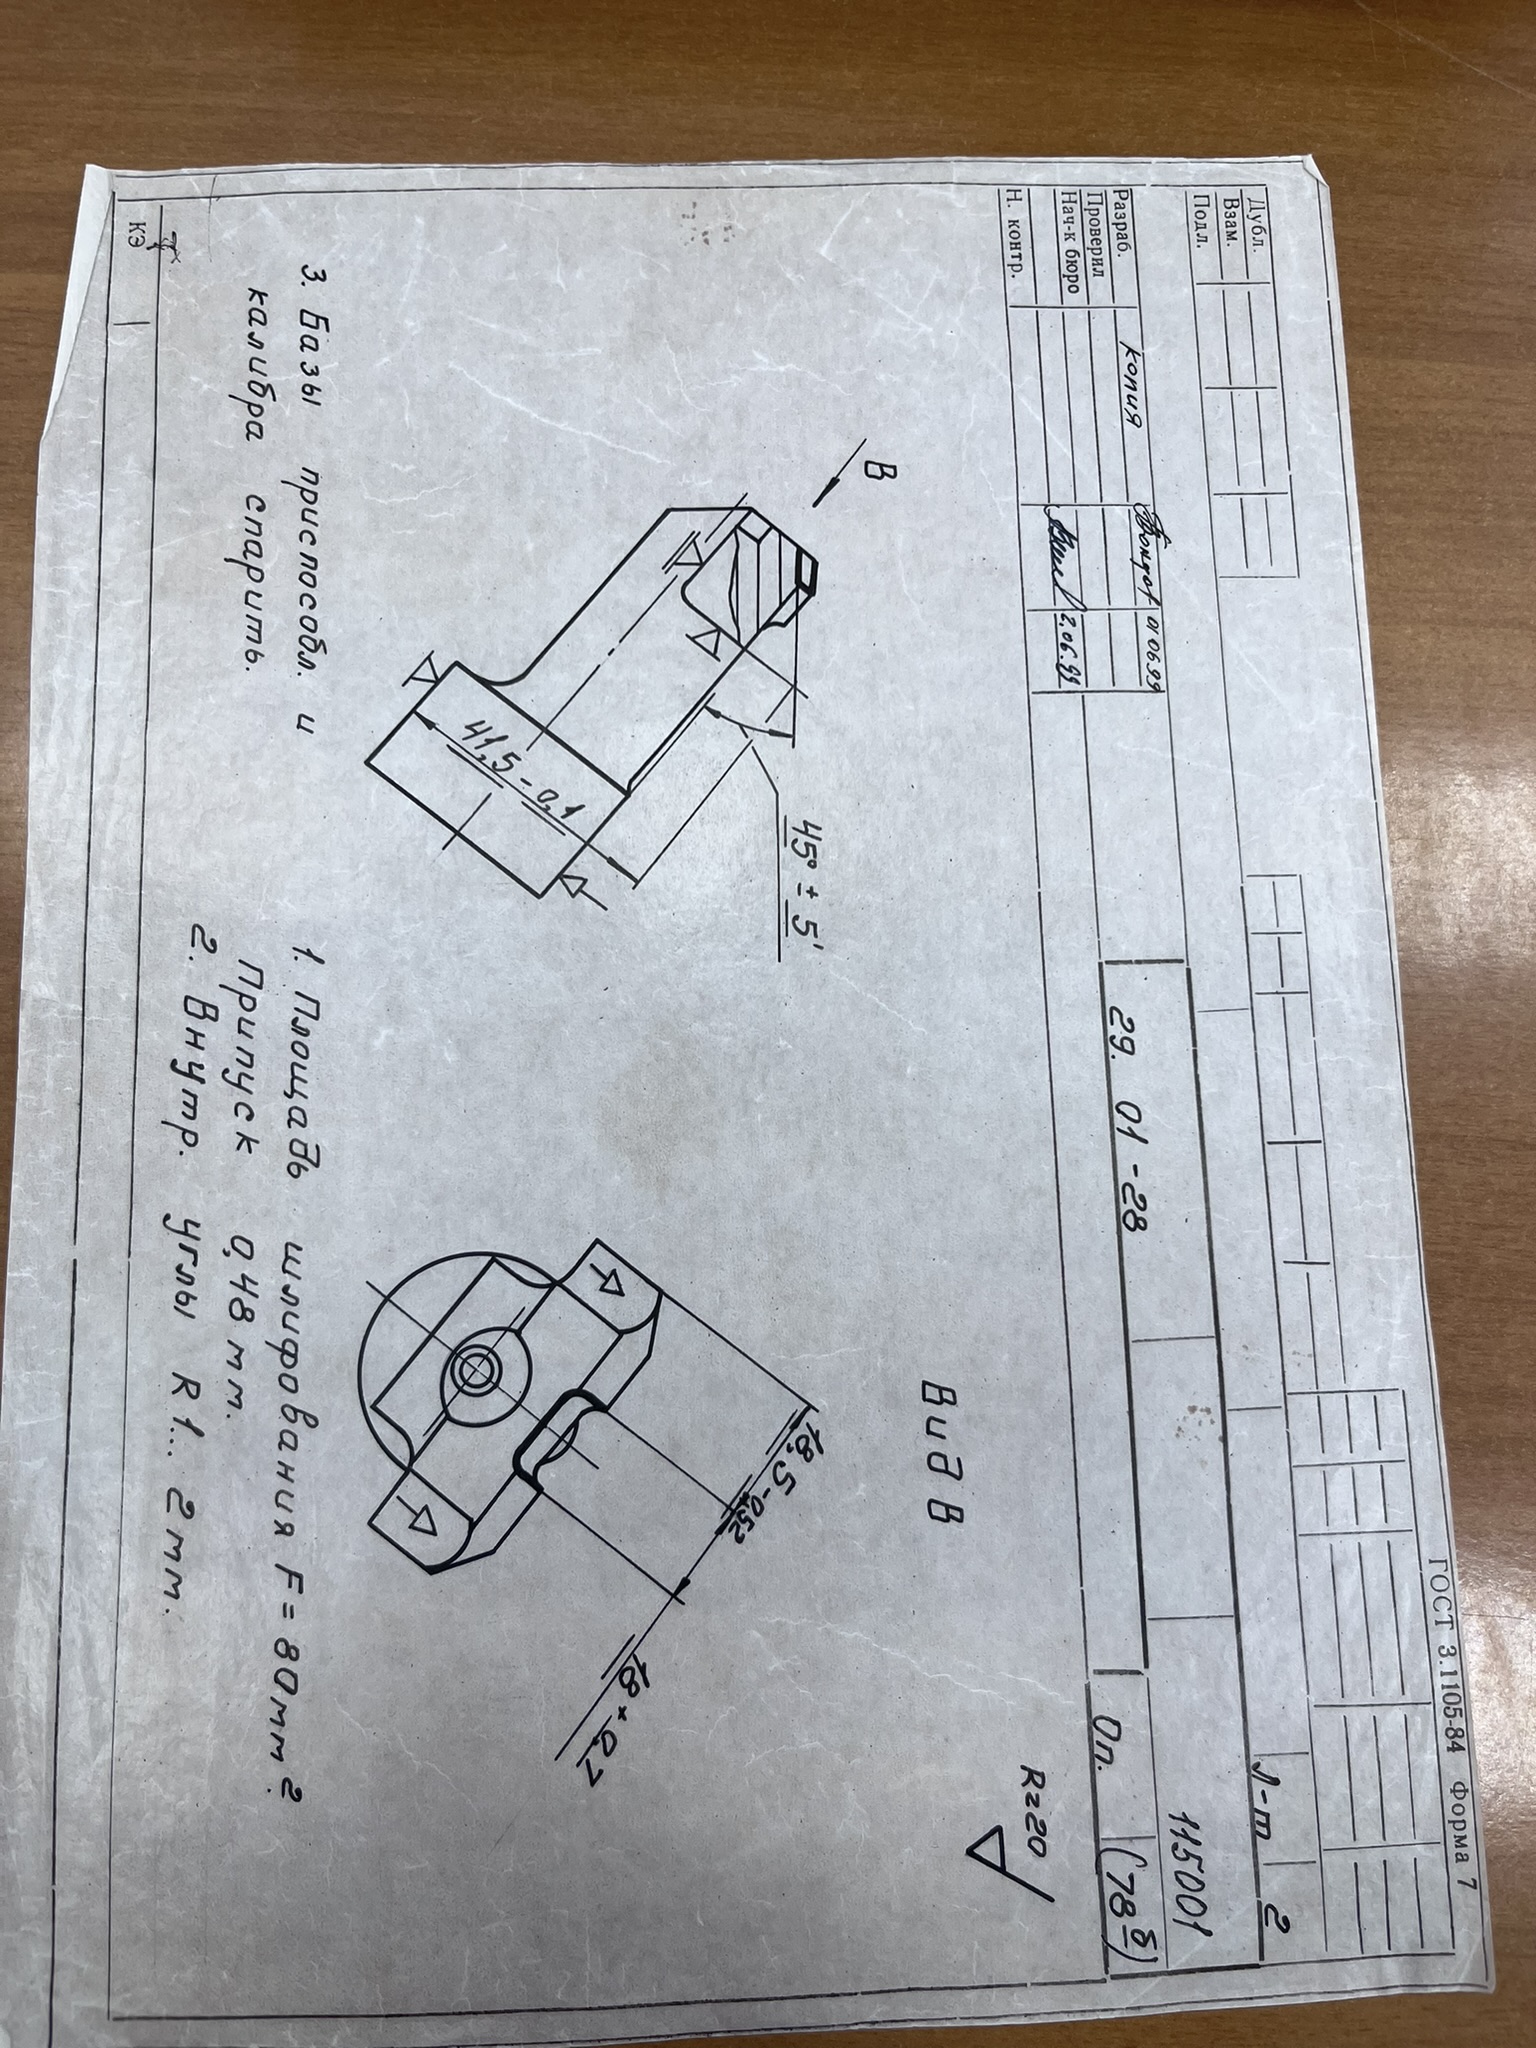 ГОСТ 3.1105-84 Форма 7
Дубл.
Взам.
Подл.
Л-т 2
115001
Разраб. копия 01 06 99
Проверил
Нач-к бюро 2.06.99
Н. контр.
29. 01 - 28
Оп. (78б)
Rz20
Вид В
В
45° ± 5'
18,5 - 0,52
18 + 0,7
41,5 - 0,1
3. Базы приспособл. и
калибра спарить.
1. Площадь шлифования F = 80мм².
Припуск 0,48 мм.
2. Внутр. углы R 1... 2мм.
КЭ